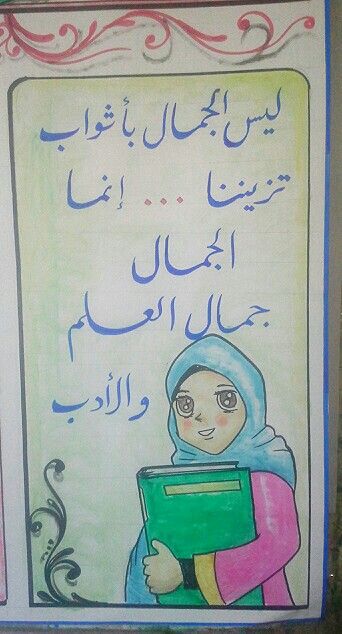 ليس الجمال بأثواب
تزيننا ... إنما
الجمال
جمال العلم
والأدب